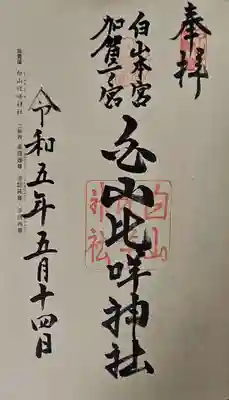 奉拝
白山本宮
加賀一ノ宮
白山比咩神社
令和五年五月十四日
白山比咩神社